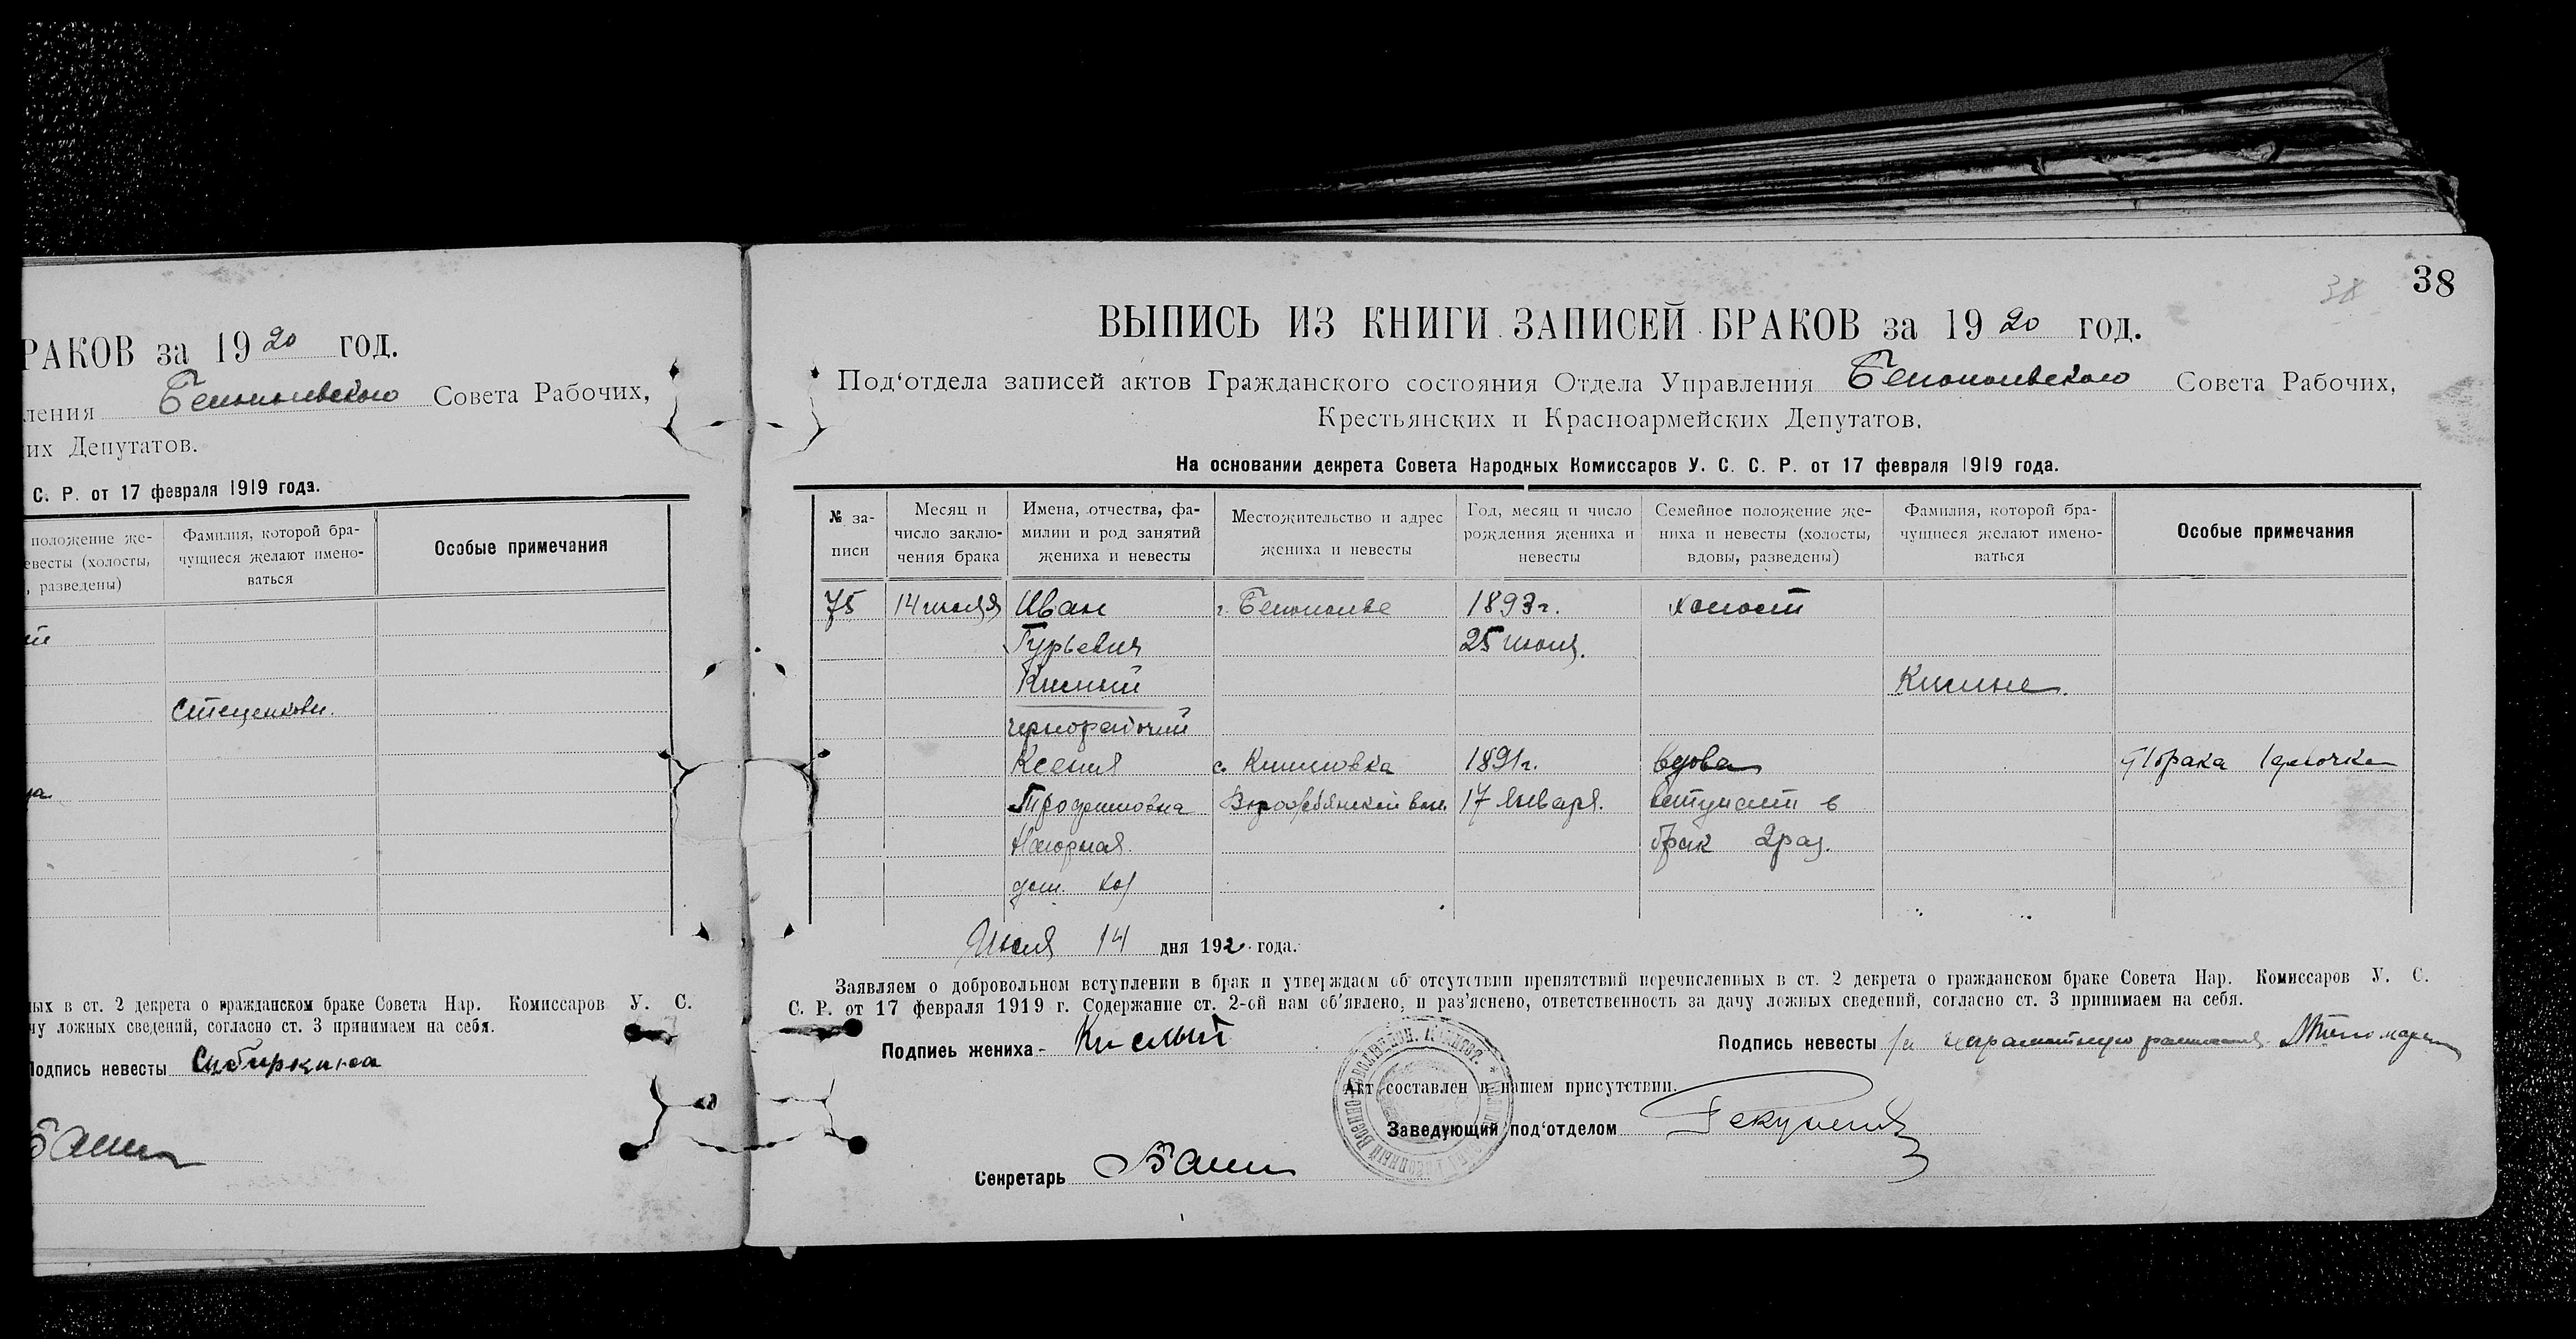 РАКОВ за 1920 год.
ления Белопольского Совета Рабочих,
их Депутатов.
С. Р. от 17 февраля 1919 года.
положение же-
евесты (холосты,
, разведены)
Фамилия, которой бра-
чущиеся желают имено-
ваться
Особые примечания
Стеценковы.
ных в ст. 2 декрета о гражданском браке Совета Нар. Комиссаров У. С.
чу ложных сведений, согласно ст. 3 принимаем на себя.
Подпись невесты Сибиркина
38
38
ВЫПИСЬ ИЗ КНИГИ ЗАПИСЕЙ БРАКОВ за 1920 год.
Под‘отдела записей актов Гражданского состояния Отдела Управления Белопольского Совета Рабочих,
Крестьянских и Красноармейских Депутатов.
На основании декрета Совета Народных Комиссаров У. С. С. Р. от 17 февраля 1919 года.
№ за-
писи
Месяц и
число заклю-
чения брака
Имена, отчества, фа-
милии и род занятий
жениха и невесты
Местожительство и адрес
жениха и невесты
Год, месяц и число
рождения жениха и
невесты
Семейное положение же-
ниха и невесты (холосты,
вдовы, разведены)
Фамилия, которой бра-
чущиеся желают имено-
ваться
Особые примечания
75 14 июля Иван г. Белополье 1893г. холост
Гурьевич 25 июля.
Кислый Кислые.
чернорабочий
Ксения с. Климовка 1891г. вдова брака 1 дочка
Трофимовна Ворожбянской вол. 17 января. вступает в
Нагорная брак 2 раз.
дом. хоз
Июля 14 дня 1920 года.
Заявляем о добровольном вступлении в брак и утверждаем об отсутствии препятствий перечисленных в ст. 2 декрета о гражданском браке Совета Нар. Комиссаров У. С.
С. Р. от 17 февраля 1919 г. Содержание ст. 2-ой нам об‘явлено, и раз‘яснено, ответственность за дачу ложных сведений, согласно ст. 3 принимаем на себя.
Подпись жениха- Кислый
Подпись невесты за неграмотную расписался
Акт составлен в нашем присутствии.
Заведующий под‘отделом
Секретарь